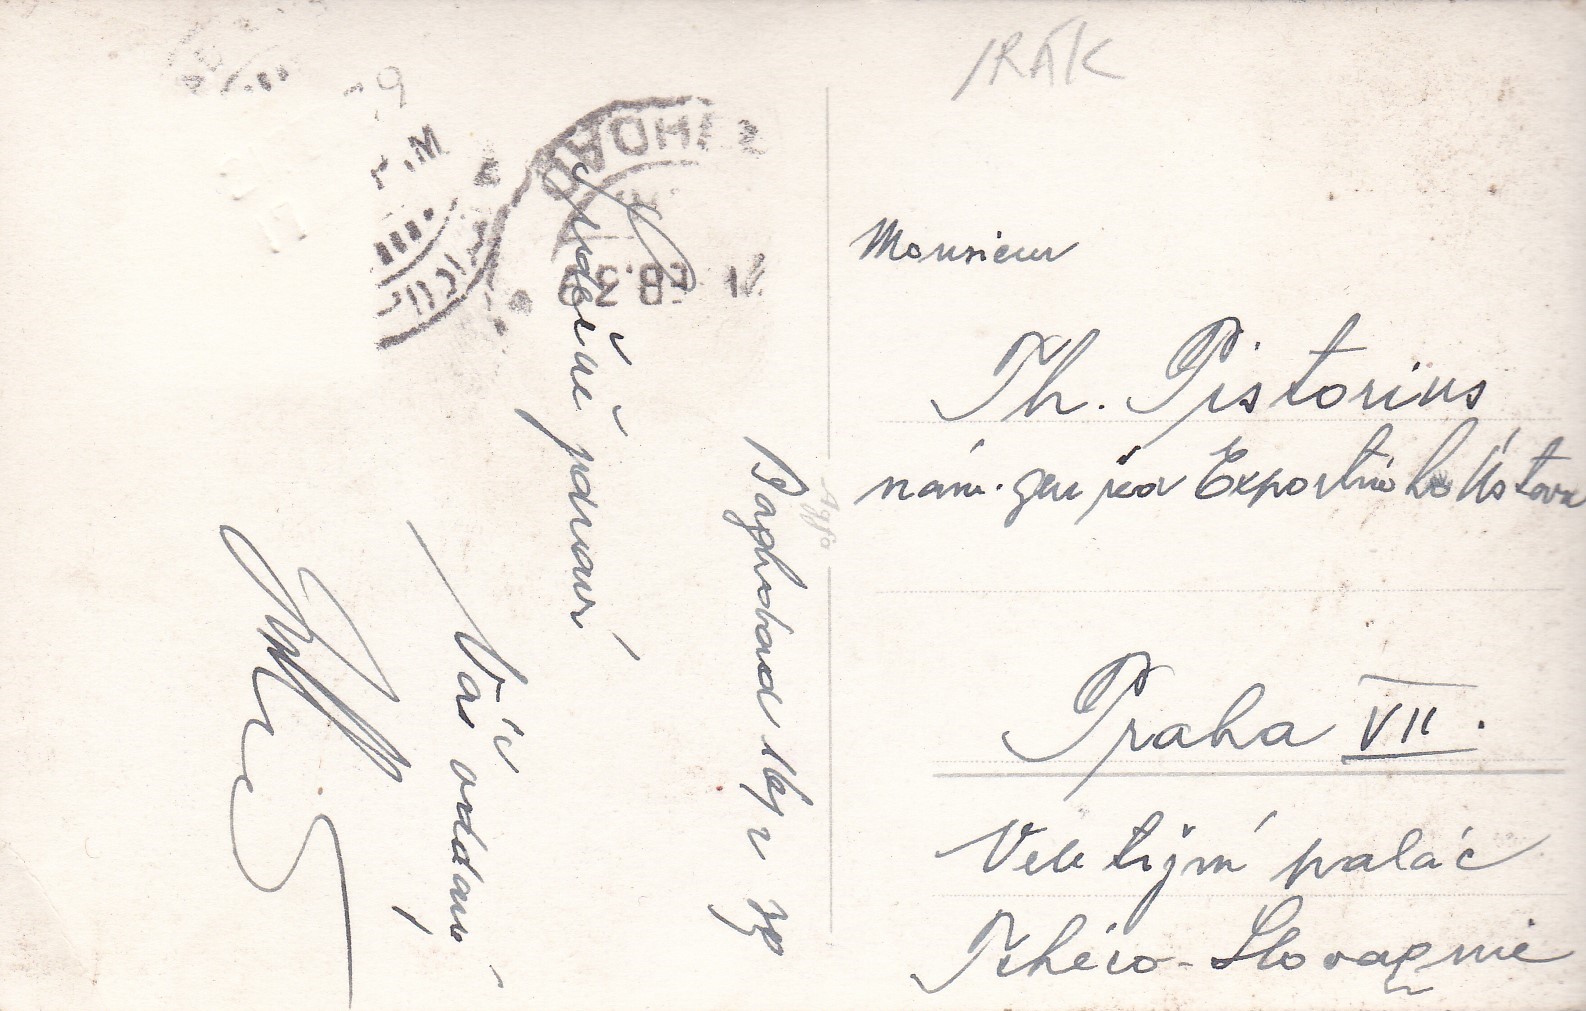 IRÁK
Monsieur
Th. Pistorius
nám. gen. řed. Exportního Ústavu
Praha VII.
Veletržní palác
Tchéco-Slovaquie
Baghdad 16/2 38
Srdečné zdraví
Váš oddaný
Agfa
GHDAD
FEB.3